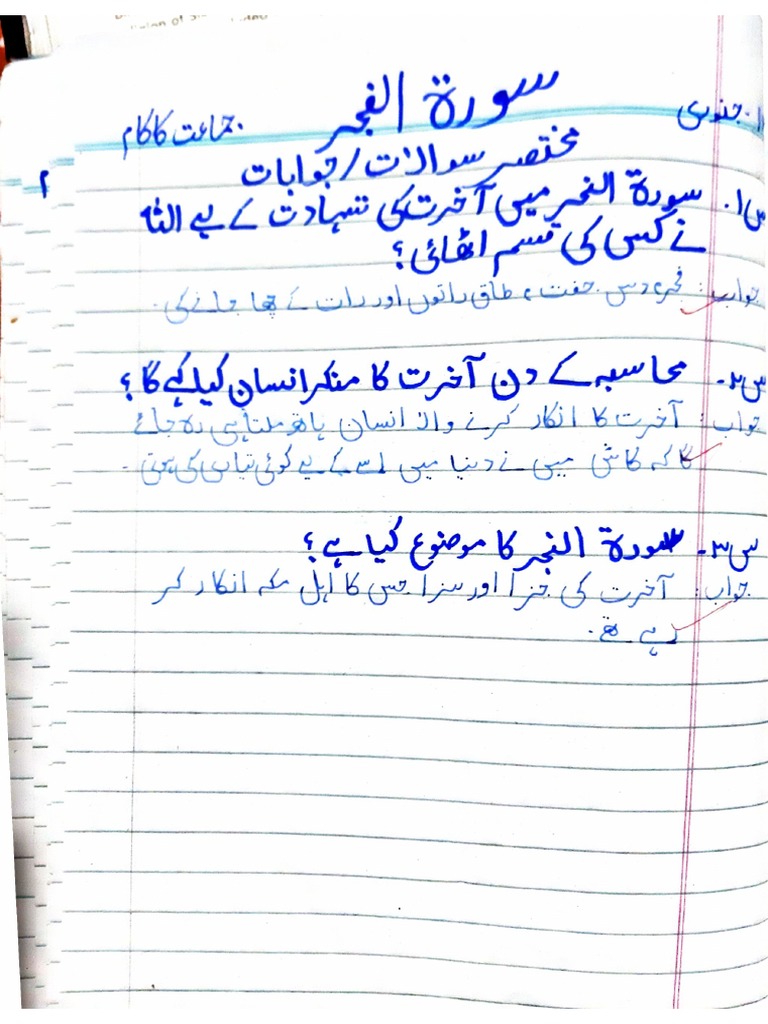 ۱۰ جنوری
سورۃ الفجر
جماعت کا کام
مختصر سوالات / جوابات
س۱. سورۃ الفجر میں آخرت کی شہادت کے لیے اللہ
نے کس کی قسم اٹھائی؟
جواب: فجر، دس جفت، طاق راتوں اور رات کے چھا جانے کی۔
س۲۔ محاسبہ کے دن آخرت کا منکر انسان کیا کہے گا؟
جواب: آخرت کا انکار کرنے والا انسان ہاتھ ملتا ہی رہ جائے
گا کہ کاش میں نے دنیا میں اسکے لیے کوئی تیاری کی ہوتی۔
س۳۔ سورۃ الفجر کا موضوع کیا ہے؟
جواب: آخرت کی جزا اور سزا جس کا اہل مکہ انکار کر
رہے تھے.